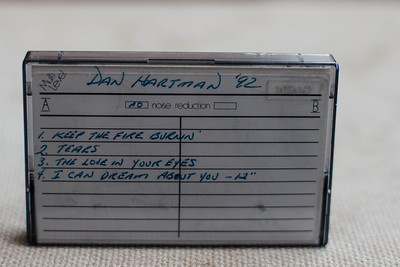 DAN HARTMAN '92
A
B
NO noise reduction
1. KEEP THE FIRE BURNIN'
2. TEARS
3. THE LOVE IN YOUR EYES
4. I CAN DREAM ABOUT YOU - 12"